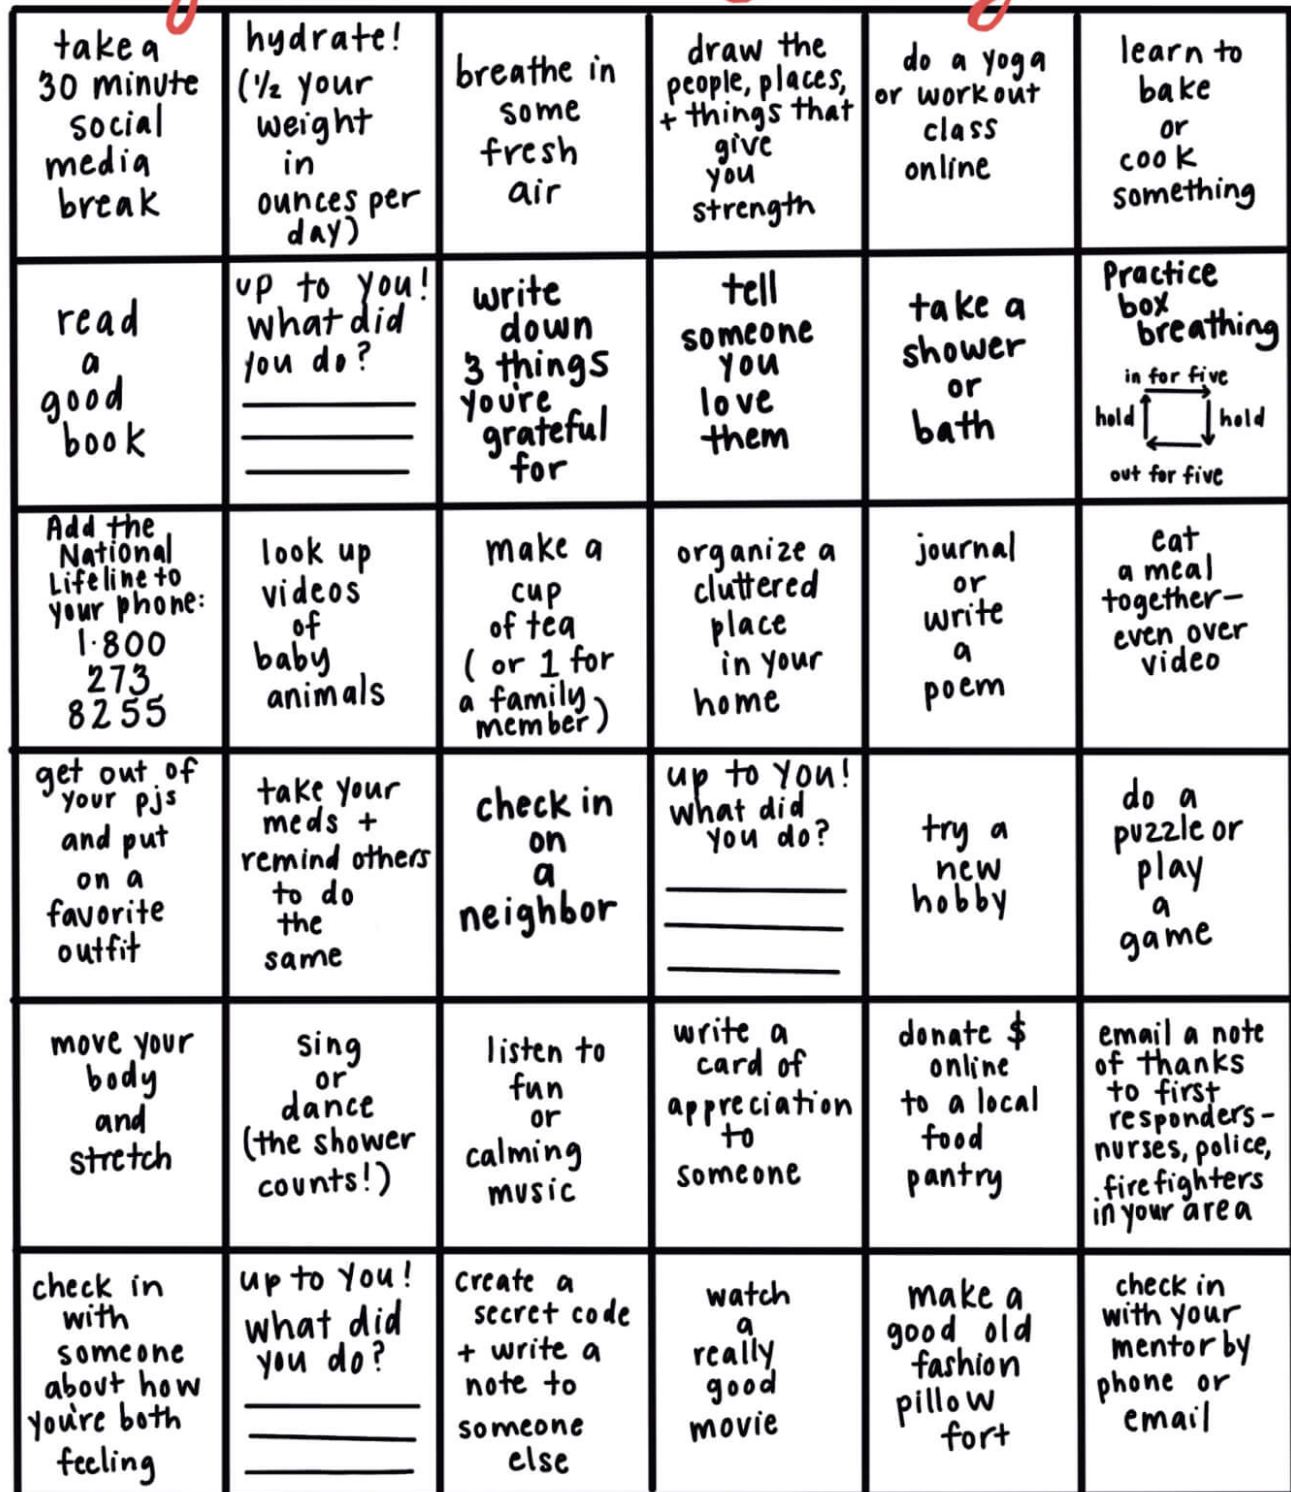 take a
30 minute
social
media
break
hydrate!
(½ your
weight
in
ounces per
day)
breathe in
some
fresh
air
draw the
people, places,
+ things that
give
you
strength
do a yoga
or workout
class
online
learn to
bake
or
cook
something
read
a
good
book
up to you!
what did
you do?
write
down
3 things
you're
grateful
for
tell
someone
you
love
them
take a
shower
or
bath
Practice
box
breathing
in for five
hold
hold
out for five
Add the
National
Lifeline to
your phone:
1·800
273
8255
look up
videos
of
baby
animals
make a
cup
of tea
( or 1 for
a family
member)
organize a
cluttered
place
in your
home
journal
or
write
a
poem
eat
a meal
together-
even over
video
get out of
your pjs
and put
on a
favorite
outfit
take your
meds +
remind others
to do
the
same
check in
on
a
neighbor
up to you!
what did
you do?
try a
new
hobby
do a
puzzle or
play
a
game
move your
body
and
stretch
sing
or
dance
(the shower
counts!)
listen to
fun
or
calming
music
write a
card of
appreciation
to
someone
donate $
online
to a local
food
pantry
email a note
of thanks
to first
responders-
nurses, police,
firefighters
in your area
check in
with
someone
about how
you're both
feeling
up to you!
what did
you do?
create a
secret code
+ write a
note to
someone
else
watch
a
really
good
movie
make a
good old
fashion
pillow
fort
check in
with your
mentor by
phone or
email